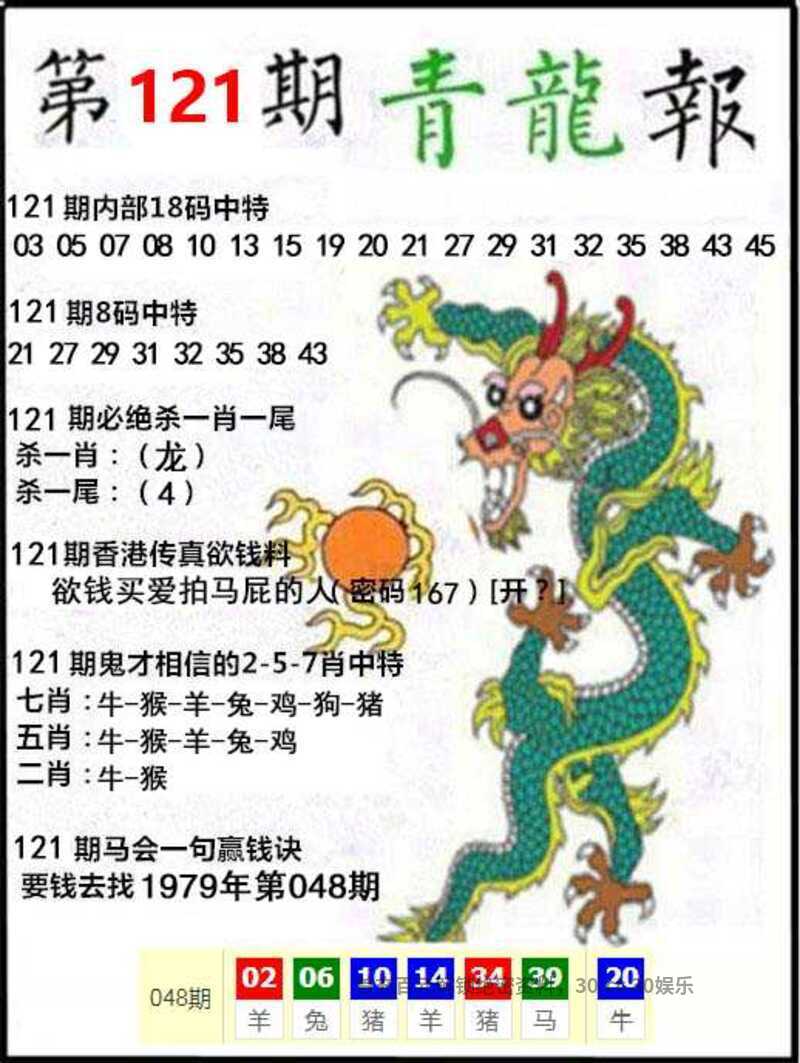 第121期青龍報
121期内部18码中特
03 05 07 08 10 13 15 19 20 21 27 29 31 32 35 38 43 45
121期8码中特
21 27 29 31 32 35 38 43
121期必绝杀一肖一尾
杀一肖：（龙）
杀一尾：（4）
121期香港传真欲钱料
欲钱买爱拍马屁的人（密码167）[开？]
121期鬼才相信的2-5-7肖中特
七肖：牛-猴-羊-兔-鸡-狗-猪
五肖：牛-猴-羊-兔-鸡
二肖：牛-猴
121期马会一句赢钱诀
要钱去找1979年第048期
048期 02 06 10 14 34 39 20
羊 兔 猪 羊 猪 马 牛
娱乐